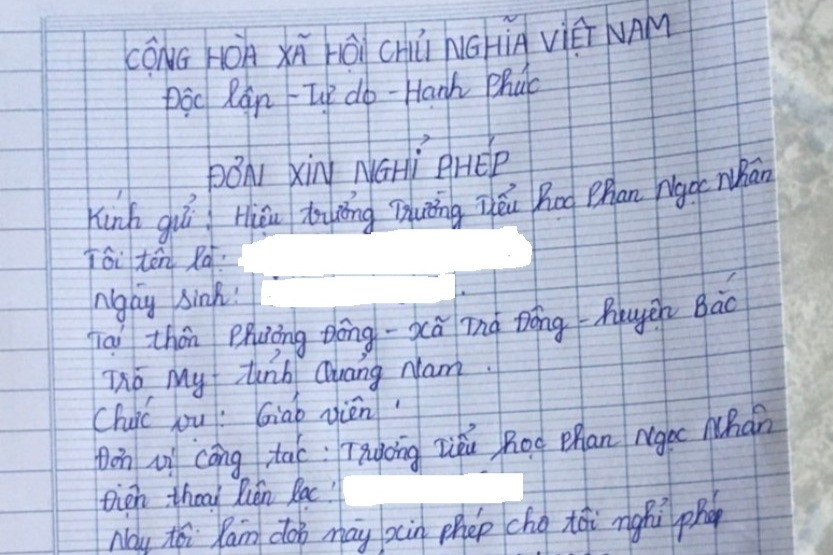 CỘNG HÒA XÃ HỘI CHỦ NGHĨA VIỆT NAM
Độc lập - Tự do - Hạnh Phúc
ĐƠN XIN NGHỈ PHÉP
Kính gửi: Hiệu trưởng Trường Tiểu học Phan Ngọc Nhân
Tôi tên là:
Ngày sinh:
Tại thôn Phương Đông - xã Trà Đông - huyện Bắc
Trà My - tỉnh Quảng Nam.
Chức vụ: Giáo viên
Đơn vị công tác: Trường Tiểu học Phan Ngọc Nhân
Điện thoại liên lạc:
Nay tôi làm đơn này xin phép cho tôi nghỉ phép